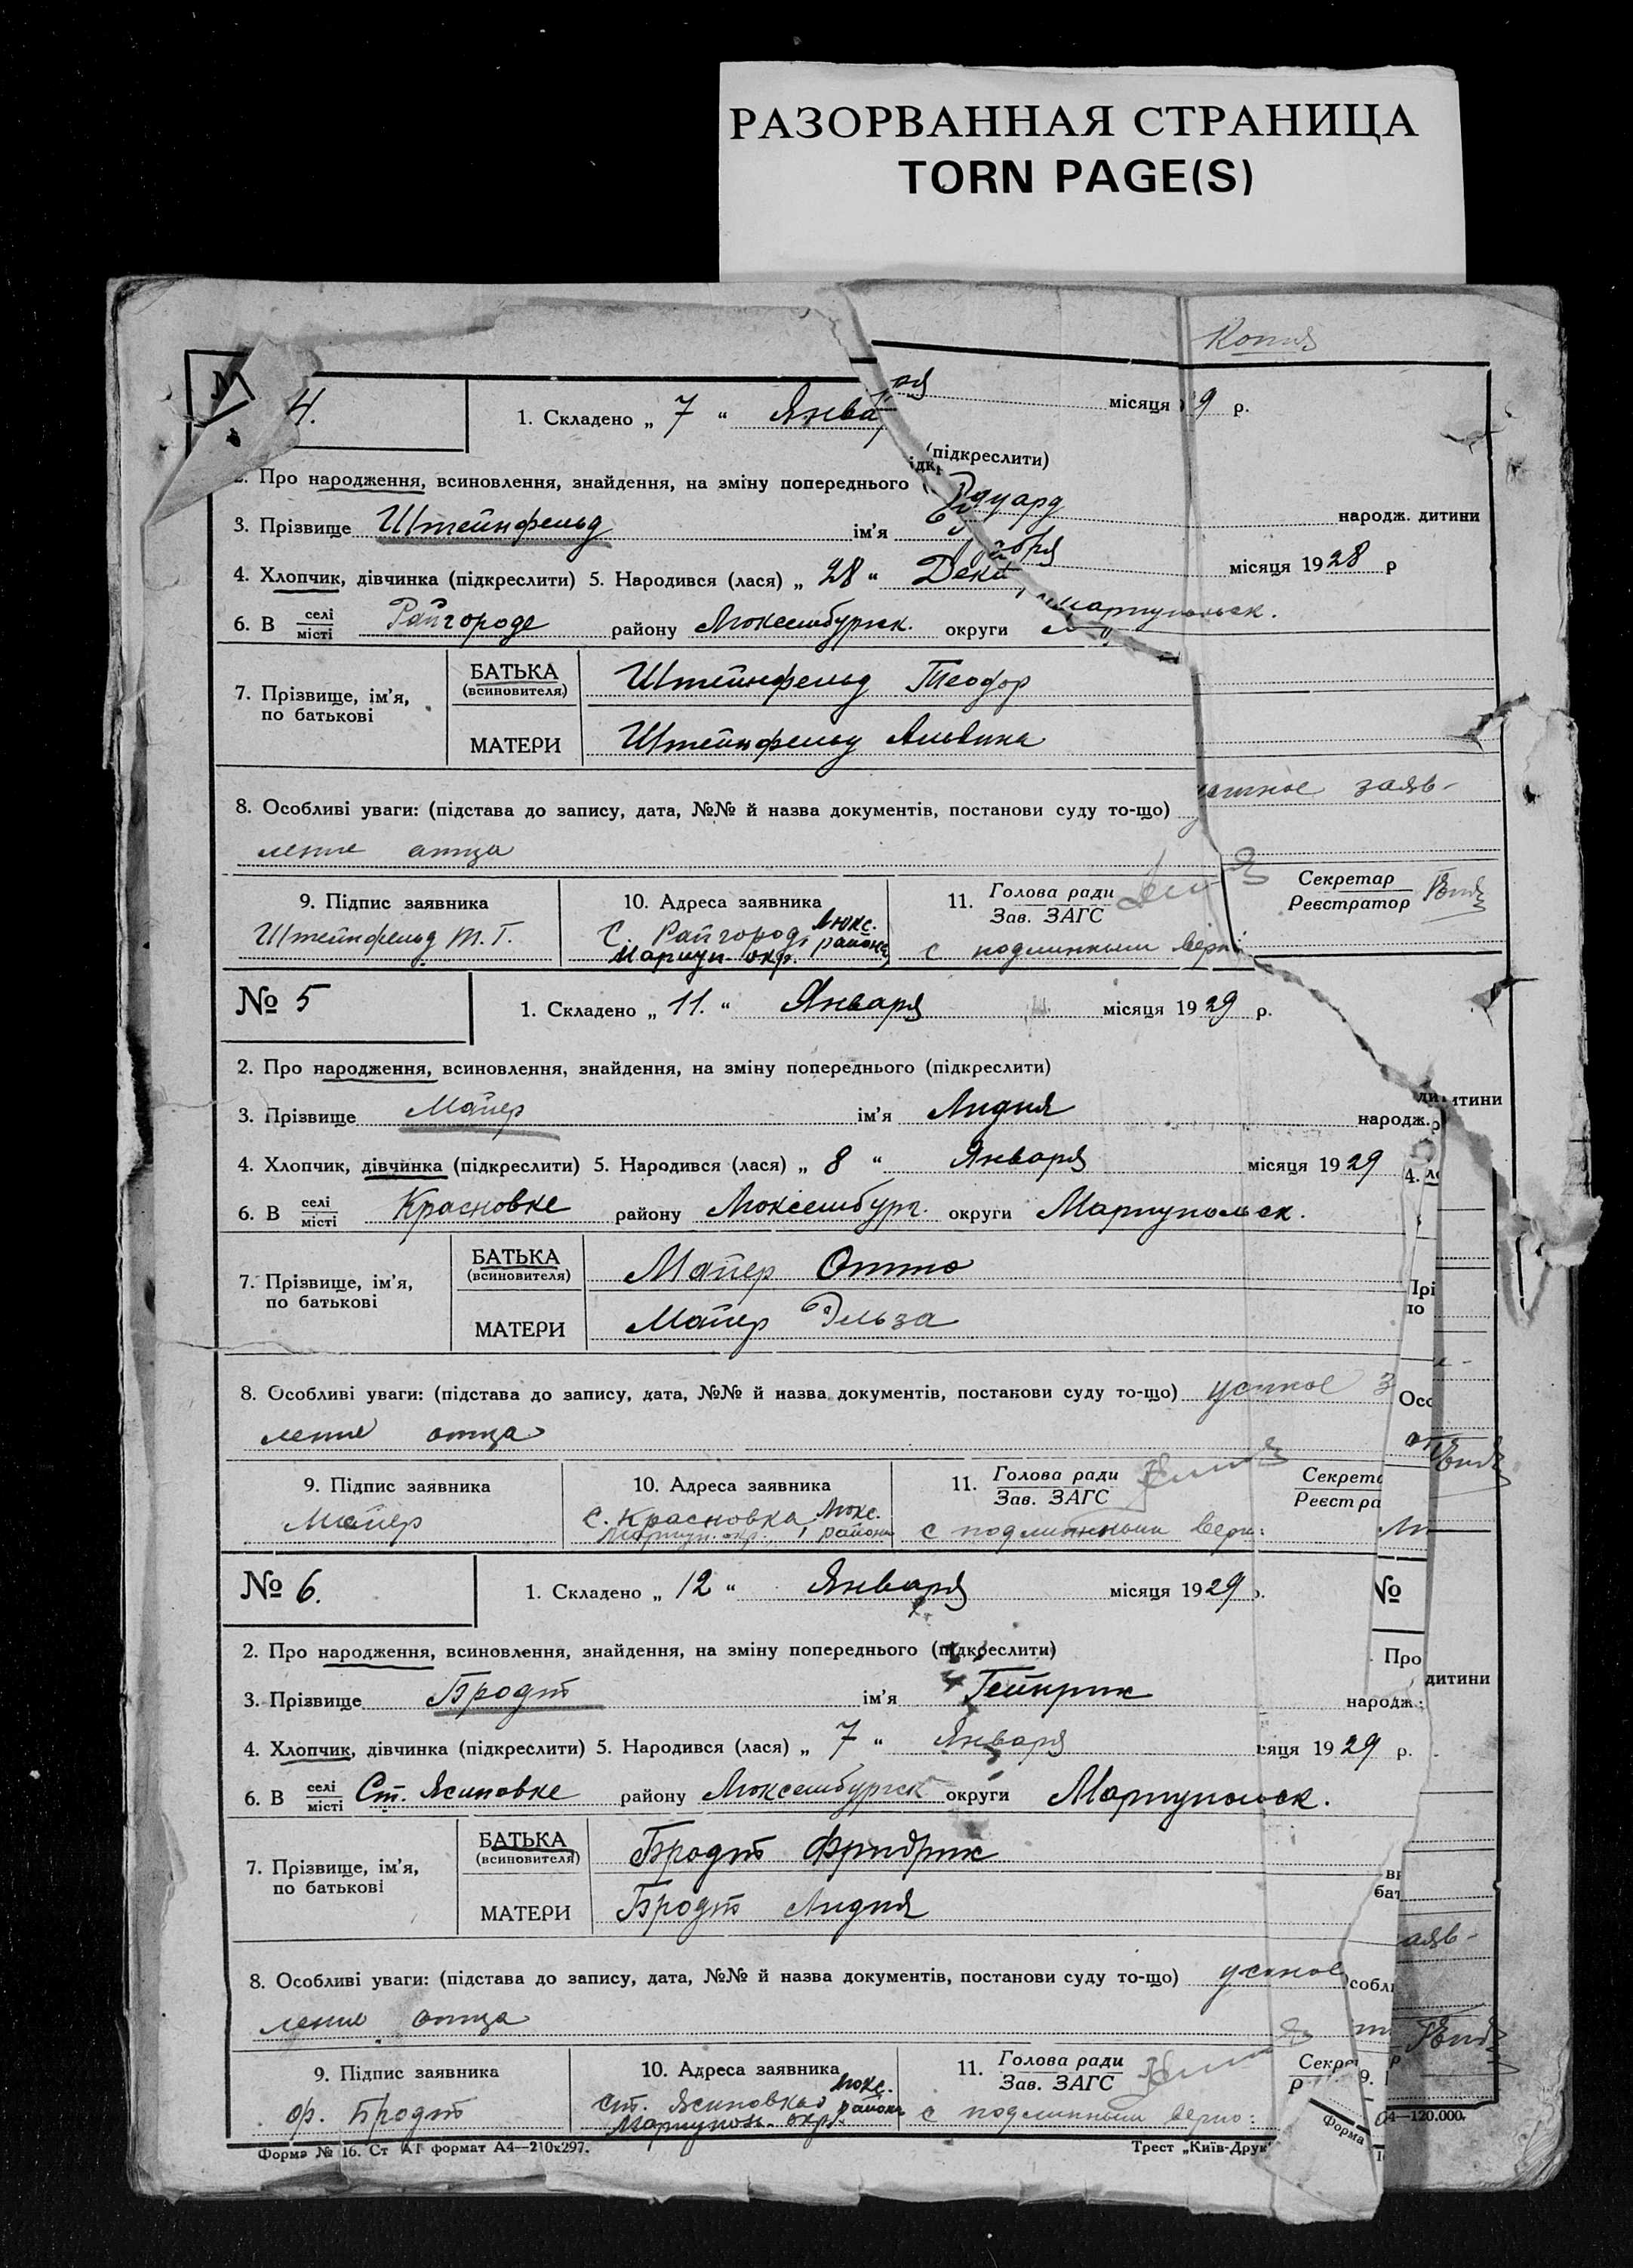 РАЗОРВАННАЯ СТРАНИЦА
TORN PAGE(S)
Копия
4.
1. Складено „ 7 “ Января місяця 9 р.
Про народження, всиновлення, знайдення, на зміну попереднього (підкреслити)
3. Прізвище Штейнфельд ім’я Эдуард народж. дитини
4. Хлопчик, дівчинка (підкреслити) 5. Народився (лася) „ 28 “ Декабря місяця 1928 р
6. В селі місті Райгороде району Люксембургск. округи Мариупольск.
7. Прізвище, ім’я, по батькові
БАТЬКА (всиновителя) Штейнфельд Теодор
МАТЕРИ Штейнфельд Альвина
8. Особливі уваги: (підстава до запису, дата, №№ й назва документів, постанови суду то-що) устное заяв-
ление отца
9. Підпис заявника 10. Адреса заявника 11. Голова ради Зав. ЗАГС Секретар Реєстратор
Штейнфельд Т. Г. С. Райгород, Люкс. района Мариуп. окр. с подлинным верно
№ 5 1. Складено „ 11. “ Января місяця 1929 р.
2. Про народження, всиновлення, знайдення, на зміну попереднього (підкреслити)
3. Прізвище Майер ім’я Лидия народж. дитини
4. Хлопчик, дівчинка (підкреслити) 5. Народився (лася) „ 8 “ Января місяця 1929
6. В селі місті Красновке району Люксембург. округи Мариупольск.
7. Прізвище, ім’я, по батькові
БАТЬКА (всиновителя) Майер Отто
МАТЕРИ Майер Эльза
8. Особливі уваги: (підстава до запису, дата, №№ й назва документів, постанови суду то-що) устное з
ление отца
9. Підпис заявника 10. Адреса заявника 11. Голова ради Зав. ЗАГС Секрета Реєстра
Майер С. Красновка, Люкс. района Мариуп. окр. с подлинным верно:
№ 6. 1. Складено „ 12 “ Января місяця 1929 р.
2. Про народження, всиновлення, знайдення, на зміну попереднього (підкреслити)
3. Прізвище Бродт ім’я Гейнрих народж. дитини
4. Хлопчик, дівчинка (підкреслити) 5. Народився (лася) „ 7 “ Января сяця 1929 р.
6. В селі місті Ст. Ясиновке району Люксембургск округи Мариупольск.
7. Прізвище, ім’я, по батькові
БАТЬКА (всиновителя) Бродт Фридрих
МАТЕРИ Бродт Лидия
8. Особливі уваги: (підстава до запису, дата, №№ й назва документів, постанови суду то-що) устное аяв-
ление отца
9. Підпис заявника 10. Адреса заявника 11. Голова ради Зав. ЗАГС Секре
Фр. Бродт Ст. Ясиновка Люкс. района Мариупол. окр. с подлинным верно:
Форма № 16. Ст АГ формат А4—210х297. Трест „Київ-Друк“ Форма 4—120.000.